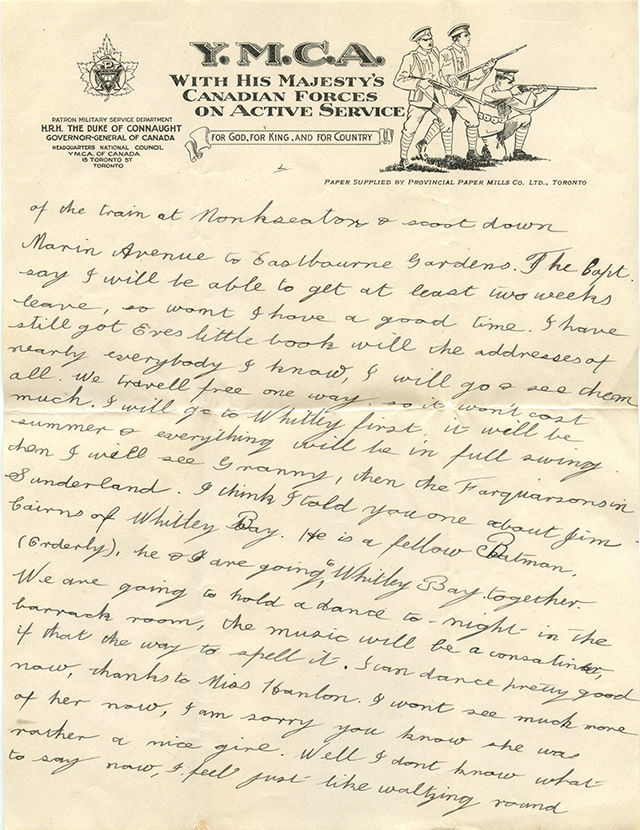 Y.M.C.A.
WITH HIS MAJESTY'S
CANADIAN FORCES
ON ACTIVE SERVICE
FOR GOD, FOR KING, AND FOR COUNTRY
PATRON MILITARY SERVICE DEPARTMENT
H.R.H. THE DUKE OF CONNAUGHT
GOVERNOR-GENERAL OF CANADA
HEADQUARTERS NATIONAL COUNCIL
Y.M.C.A. OF CANADA
15 TORONTO ST
TORONTO
PAPER SUPPLIED BY PROVINCIAL PAPER MILLS CO. LTD., TORONTO
of the train at Monkseaton & scoot down
Marin Avenue to Eastbourne Gardens. The Capt.
say I will be able to get at least two weeks
leave, so wont I have a good time. I have
still got Eves little book will the addresses of
nearly everybody I know, I will go & see them
all. We travell free one way. so it won't cost
much. I will go to Whitley first, it will be
summer & everything will be in full swing.
then I will see Granny, then the Farquarsons in
Sunderland. I think I told you one about Jim
Cairns of Whitley Bay. He is a fellow Batman.
(Orderly), he & I are going to Whitley Bay together.
We are going to hold a dance to-night in the
barrack room, the music will be a consatina,
if that the way to spell it. I can dance pretty good
now, thanks to Miss Hanlon. I wont see much more
of her now, I am sorry you know she was
rather a nice girl. Well I dont know what
to say now, I feel just like waltzing round